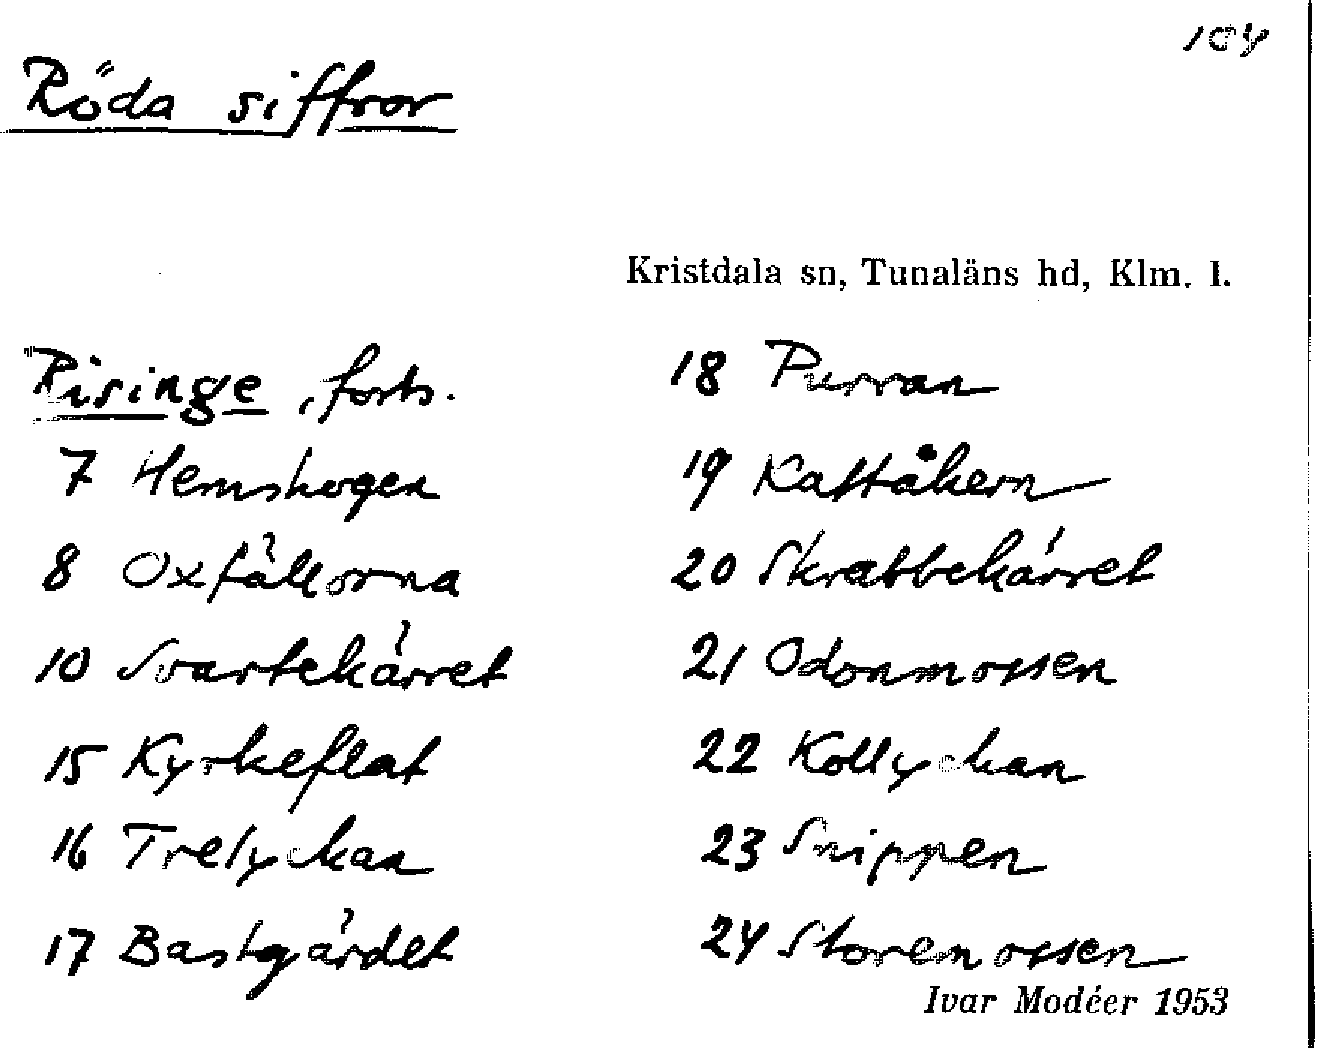 104
Röda siffror
Kristdala sn, Tunaläns hd, Klm. l.
Risinge, forts.
7 Hemskogen
8 Oxfällorna
10 Svartekärret
15 Kyrkeflat
16 Trelyckan
17 Bastgärdet
18 Purran
19 Kattåkern
20 Skrabbekärret
21 Odonmossen
22 Kollyckan
23 Snippen
24 Storemossen
Ivar Modéer 1953